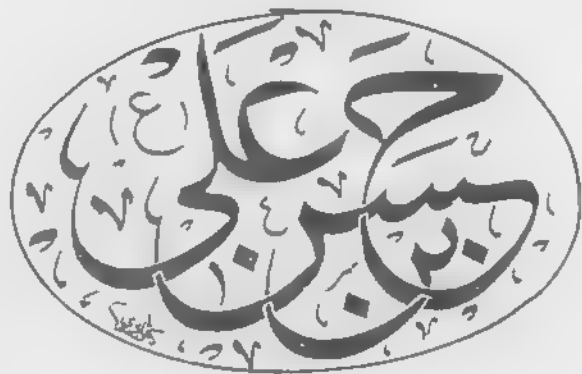 حسن بن علی (ع)